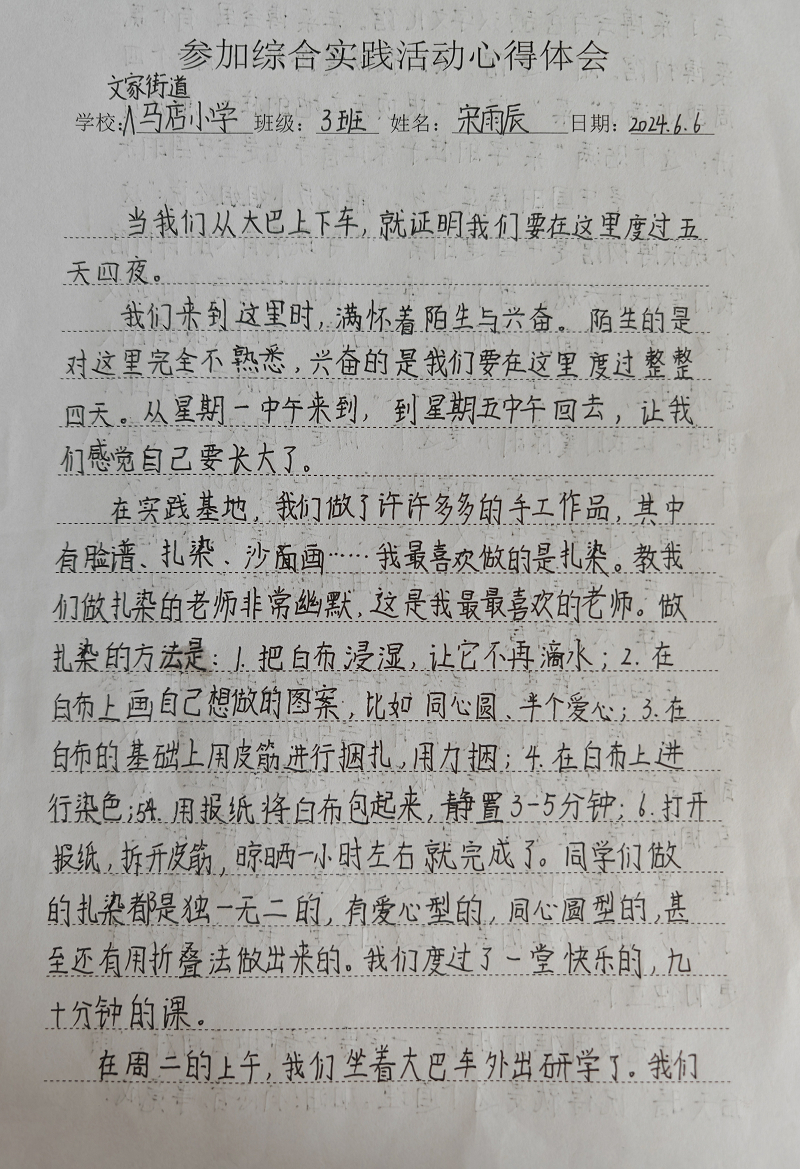 参加综合实践活动心得体会
文家街道
学校:马店小学 班级: 3班 姓名: 宋雨辰 日期: 2024.6.6
当我们从大巴上下车,就证明我们要在这里度过五
天四夜。
我们来到这里时,满怀着陌生与兴奋。陌生的是
对这里完全不熟悉,兴奋的是我们要在这里度过整整
四天。从星期一中午来到,到星期五中午回去,让我
们感觉自己要长大了。
在实践基地,我们做了许许多多的手工作品,其中
有脸谱、扎染、沙画……我最喜欢做的是扎染。教我
们做扎染的老师非常幽默,这是我最最喜欢的老师。做
扎染的方法是:1.把白布浸湿,让它不再滴水;2.在
白布上画自己想做的图案,比如同心圆、半个爱心;3.在
白布的基础上用皮筋进行捆扎,用力捆;4.在白布上进
行染色;5.用报纸将白布包起来,静置3-5分钟;6.打开
报纸,拆开皮筋,晾晒一小时左右就完成了。同学们做
的扎染都是独一无二的,有爱心型的,同心圆型的,甚
至还有用折叠法做出来的。我们度过了一堂快乐的,九
十分钟的课。
在周二的上午,我们坐着大巴车外出研学了。我们